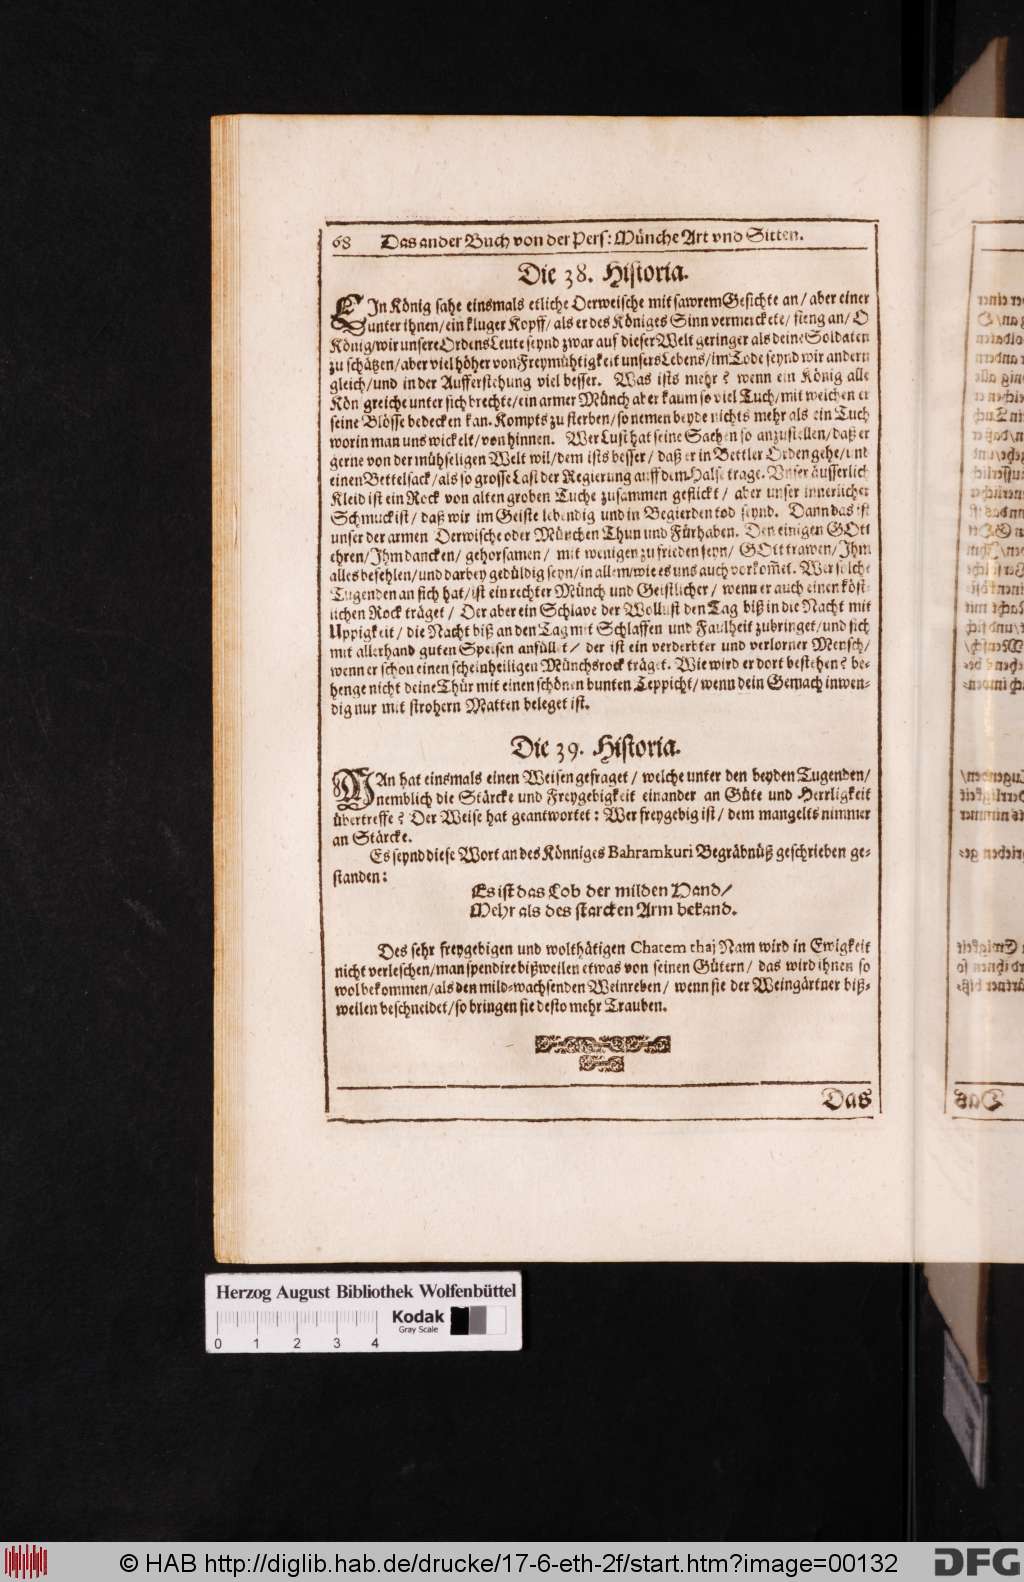 68 Das ander Buch von der Pers: Münche Art vnd Sitten.
Die 38. Historia.
EIn König sahe einsmals etliche Derweische mit sawrem Gesichte an / aber einer
unter ihnen / ein kluger Kopff / als er des Königes Sinn vermerckete / fieng an / O
König / wir unsere Ordens Leute seynd zwar auf dieser Welt geringer als deine Soldaten
zu schätzen / aber viel höher von Freymühtigkeit unsers Lebens / im Tode seynd wir andern
gleich / und in der Aufferstehung viel besser. Was ists mehr? wenn ein König alle
Kön greiche unter sich brechte / ein armer Münch aber kaum so viel Tuch / mit welchen er
seine Blösse bedecken kan. Kompts zu sterben / so nemen beyde nichts mehr als ein Tuch
worin man uns wickelt / von hinnen. Wer Lust hat seine Sachen so anzustellen / daß er
gerne von der mühseligen Welt wil / dem ists besser / daß er in Bettler Orden gehe / und
einen Bettelsack / als so grosse Last der Regierung auff dem Halse trage. Unser äusserlich
Kleid ist ein Rock von alten groben Tuche zusammen geflickt / aber unser innerlicher
Schmuck ist / daß wir im Geiste lebendig und in Begierden tod seynd. Dann das ist
unser der armen Derwische oder München Thun und Fürhaben. Den einigen GOtt
ehren / Ihm dancken / gehorsamen / mit wenigen zu frieden seyn / GOtt trawen / Ihm
alles befehlen / und darbey gedüldig seyn / in allem / wie es uns auch vorkom̃et. Wer solche
Tugenden an sich hat / ist ein rechter Münch und Geistlicher / wenn er auch einen köst-
lichen Rock träget / Der aber ein Schlave der Wollust den Tag biß in die Nacht mit
Uppigkeit / die Nacht biß an den Tag mit Schlaffen und Faulheit zubringet / und sich
mit allerhand guten Speisen anfüllet / der ist ein verderbter und verlorner Mensch /
wenn er schon einen scheinheiligen Münchsrock träget. Wie wird er dort bestehen? be-
henge nicht deine Thür mit einen schönen bunten Teppicht / wenn dein Gemach inwen-
dig nur mit strohern Matten beleget ist.
Die 39. Historia.
MAn hat einsmals einen Weisen gefraget / welche unter den beyden Tugenden /
nemblich die Stärcke und Freygebigkeit einander an Güte und Herrligkeit
übertreffe? Der Weise hat geantwortet: Wer freygebig ist / dem mangelts nimmer
an Stärcke.
Es seynd diese Wort an des Könniges Bahramkuri Begräbnüß geschrieben ge-
standen:
Es ist das Lob der milden Hand /
Mehr als des starcken Arm bekand.
Des sehr freygebigen und wolthätigen Chatem thaj Nam wird in Ewigkeit
nicht verleschen / man spendire bißweilen etwas von seinen Gütern / das wird ihnen so
wol bekommen / als den mild-wachsenden Weinreben / wenn sie der Weingärtner biß-
weilen beschneidet / so bringen sie desto mehr Trauben.
Das
Herzog August Bibliothek Wolfenbüttel
0 1 2 3 4
Kodak
Gray Scale
© HAB http://diglib.hab.de/drucke/17-6-eth-2f/start.htm?image=00132
DFG